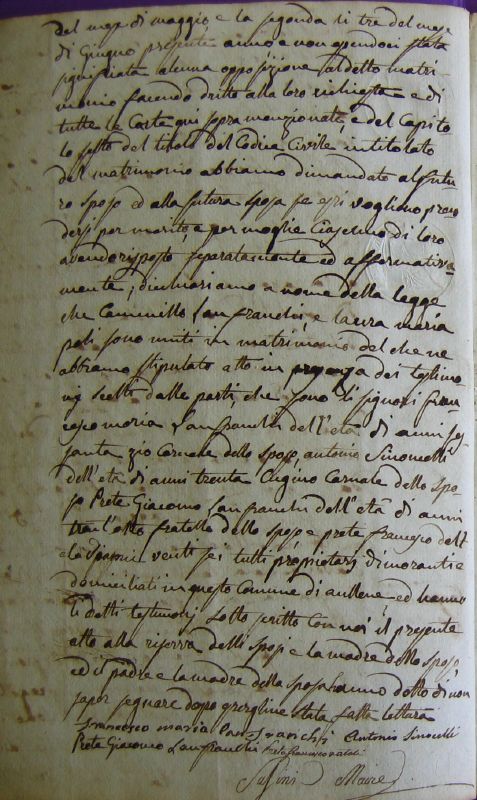 del mese di maggio e la seconda li tre del mese
di Giugno presente anno e non essendoci stata
significata alcuna opposizione al detto matri-
monio facendo dritto alla loro richiesta e di
tutte le Carte qui sopra menzionate, e del Capito
lo sesto del titolo del Codice Civile intitolato
del matrimonio abbiamo dimandato al futu-
ro sposo ed alla futura sposa se essi vogliono pren
dersi per marito, e per moglie Ciascuno di loro
avendo risposto, separatamente ed affermativa-
mente; dichiariamo a nome della legge
che Cammillo Lanfranchi, e Laura Maria
poli sono uniti in matrimonio del che ne
abbiamo stipulato atto in presenza dei testimo
nj scelti dalle parti, che sono li signori fran-
cesco maria Lanfranchi dell'età di anni ses-
santa zio Carnale dello sposo, antonio Sinoncelli
dell'età di anni trenta Cugino Carnale dello spo-
so Prete Giacomo Lanfranchi dell'età di anni
trent'otto fratello dello sposo e prete francesco dell'e
tà d'anni venti sei tutti proprietarj dimoranti e
domiciliati in questo Comune di aullene, ed hanno
li detti testimonj sotto scritto Con noi il presente
atto alla riserva delli sposi e la madre dello sposo
ed il padre e la madre della sposa hanno detto di non
saper segnare dopo essergline stata fatta lettura
Francesco maria Lanfranchi Antonio Sinocelli
Prete Giacomo Lanfranchi Prete francesco
Susini Maire